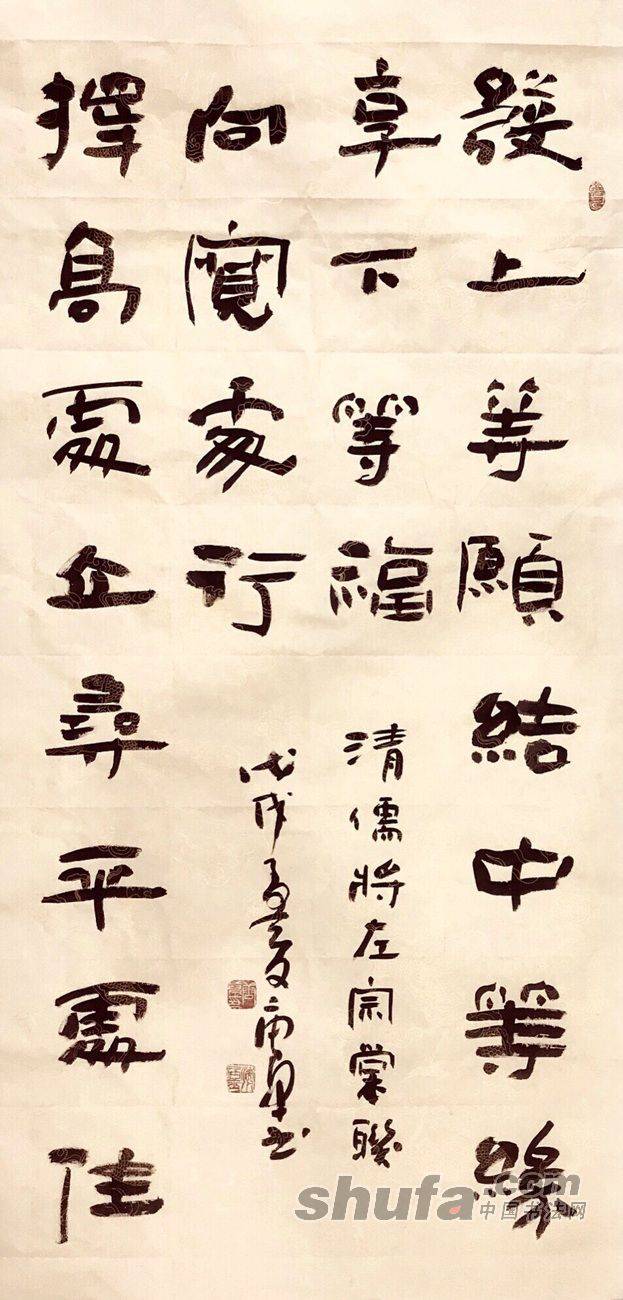 發上等願結中等緣
享下等福
擇高處立尋平處住
向寬處行
清儒將左宗棠聯
戊戌孟夏南書
shufa.com
中国书法网